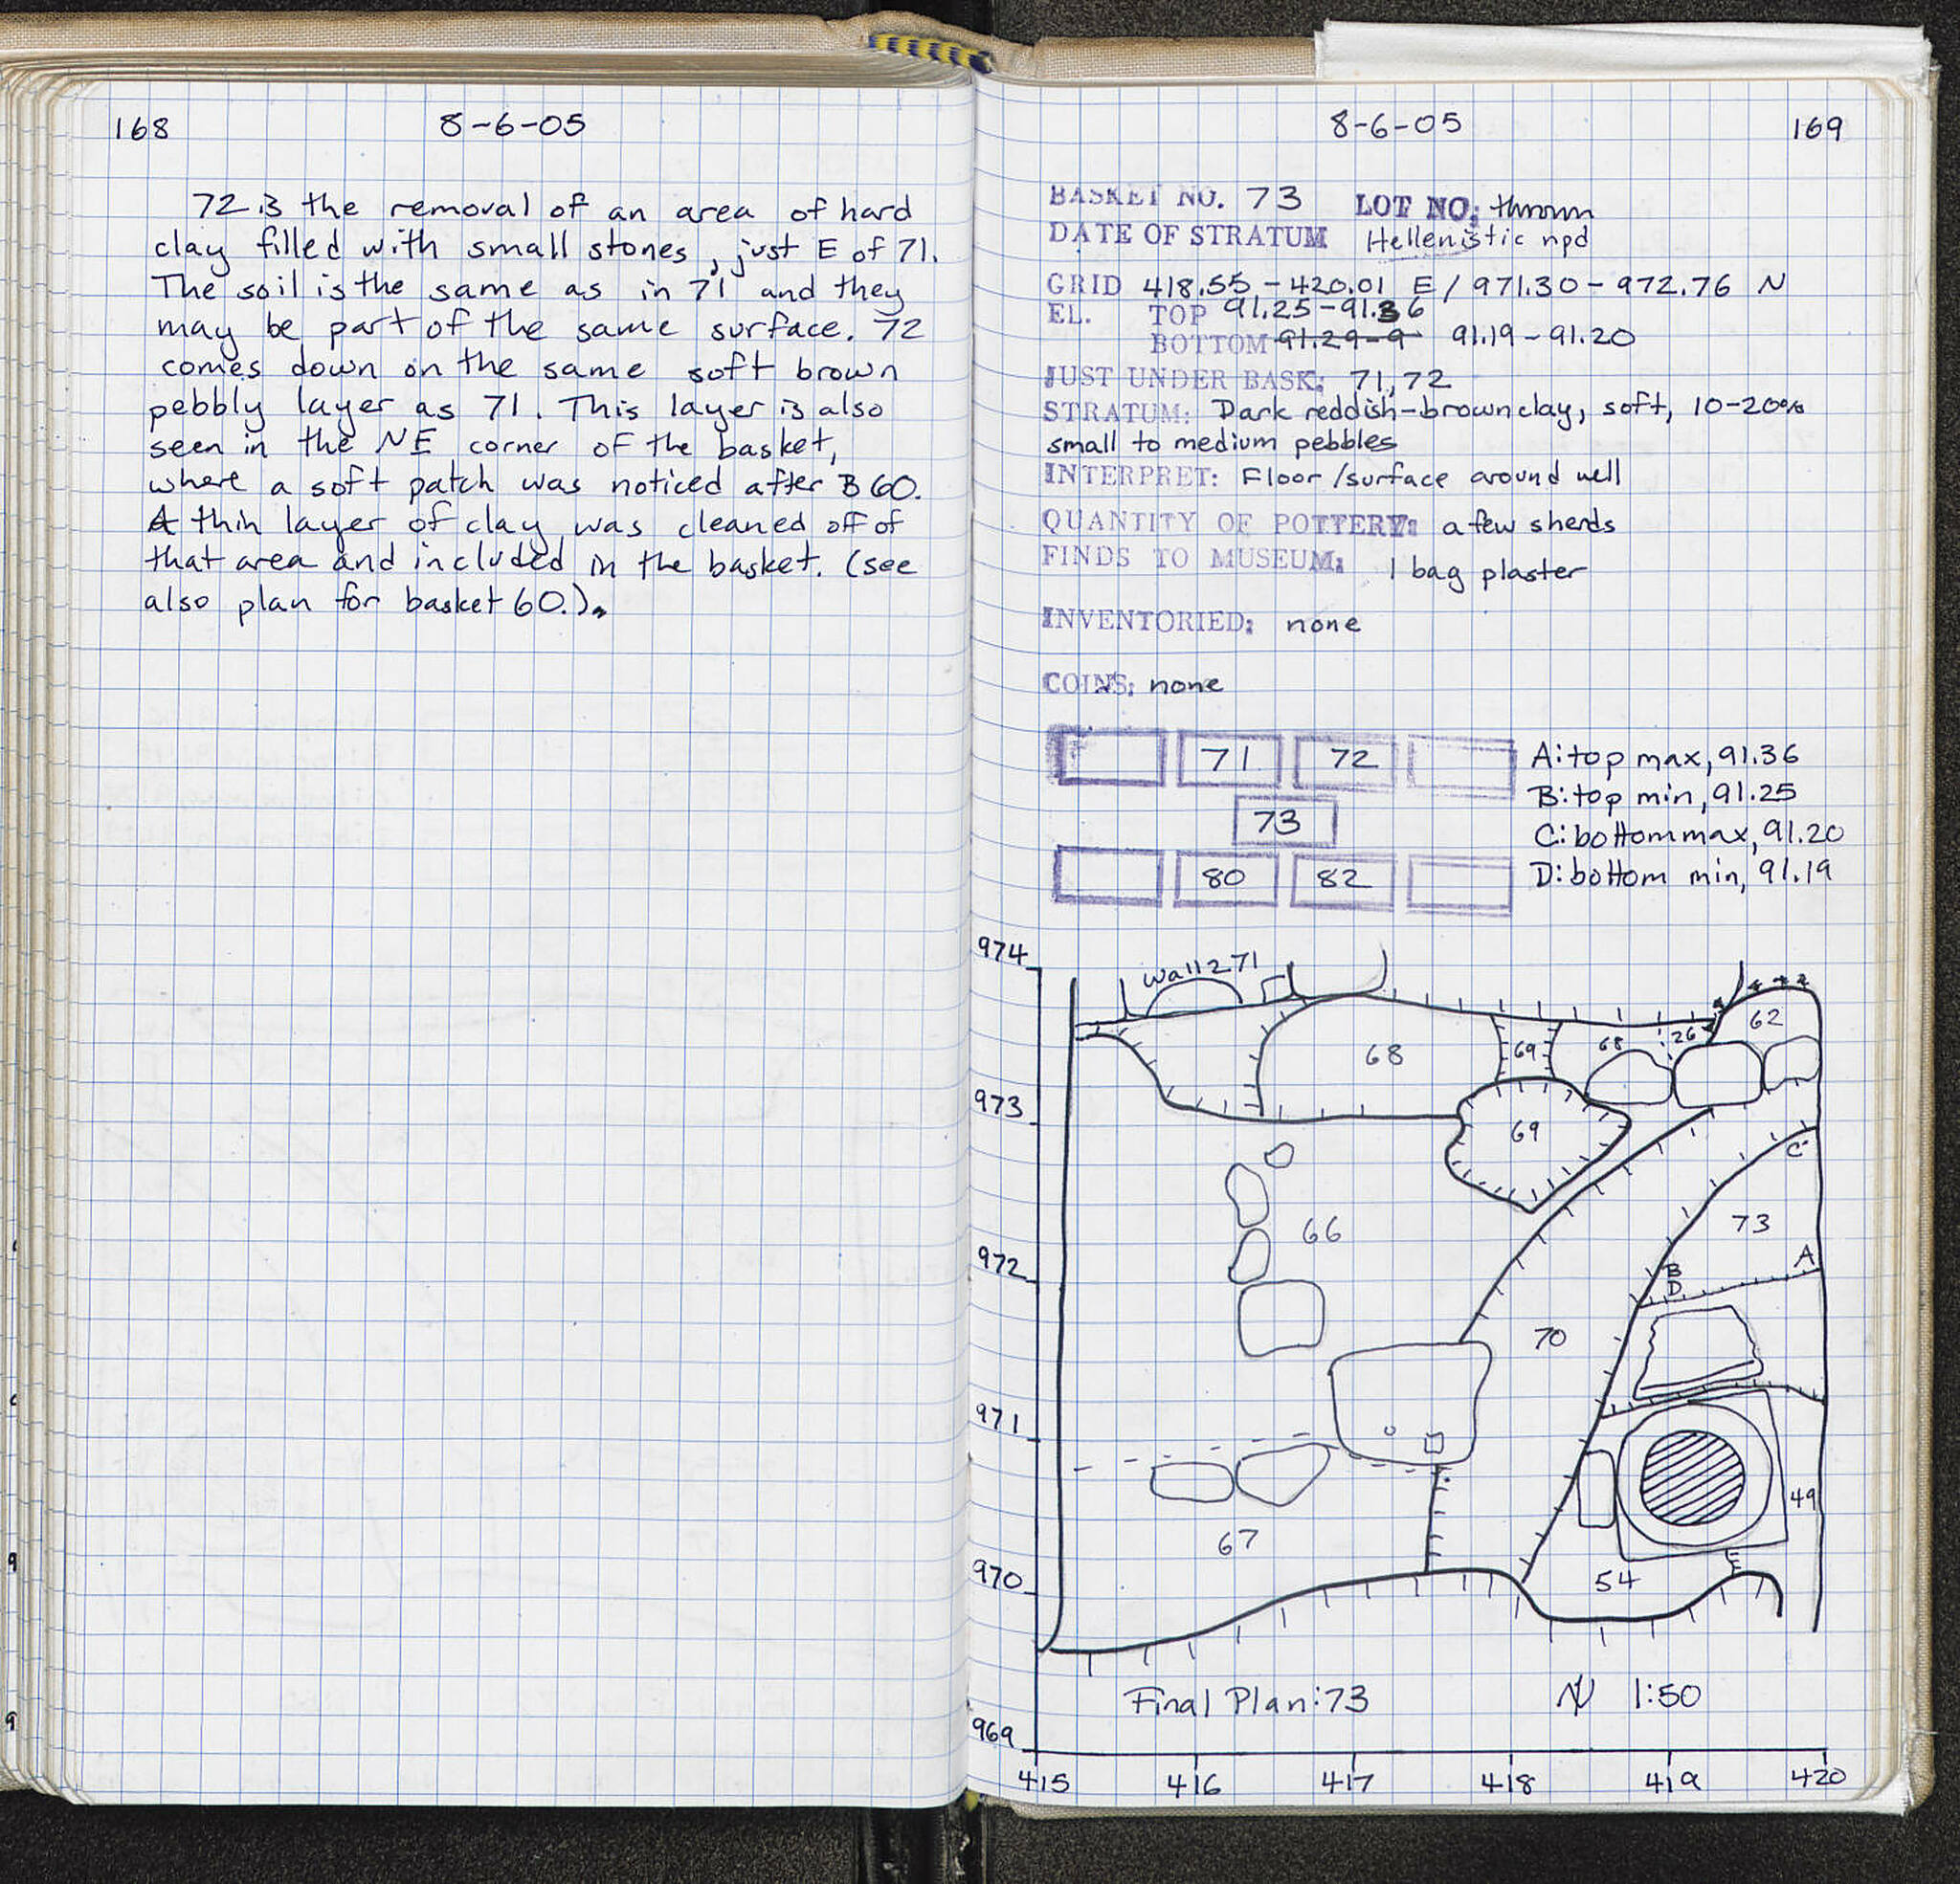 168
8-6-05
72 is the removal of an area of hard
clay filled with small stones, just E of 71.
The soil is the same as in 71 and they
may be part of the same surface. 72
comes down on the same soft brown
pebbly layer as 71. This layer is also
seen in the NE corner of the basket,
where a soft patch was noticed after B60.
A thin layer of clay was cleaned off of
that area and included in the basket. (see
also plan for basket 60.).
8-6-05
169
BASKET NO. 73 LOT NO: thrown
DATE OF STRATUM Hellenistic npd
GRID 418.55-420.01 E/971.30-972.76 N
EL. TOP 91.25-91.36
BOTTOM 91.29-9 91.19-91.20
JUST UNDER BASK: 71,72
STRATUM: Dark reddish-brown clay, soft, 10-20%
small to medium pebbles
INTERPRET: Floor/surface around well
QUANTITY OF POTTERY: a few sherds
FINDS TO MUSEUM: 1 bag plaster
INVENTORIED: none
COINS: none
71 72
73
80 82
A: top max, 91.36
B: top min, 91.25
C: bottom max, 91.20
D: bottom min, 91.19
974
Wall 271
62
68 69 68 26
973
69
C
73
66
972
A
B
D
70
971
49
67
E
970
54
Final Plan: 73 N 1:50
969
415 416 417 418 419 420